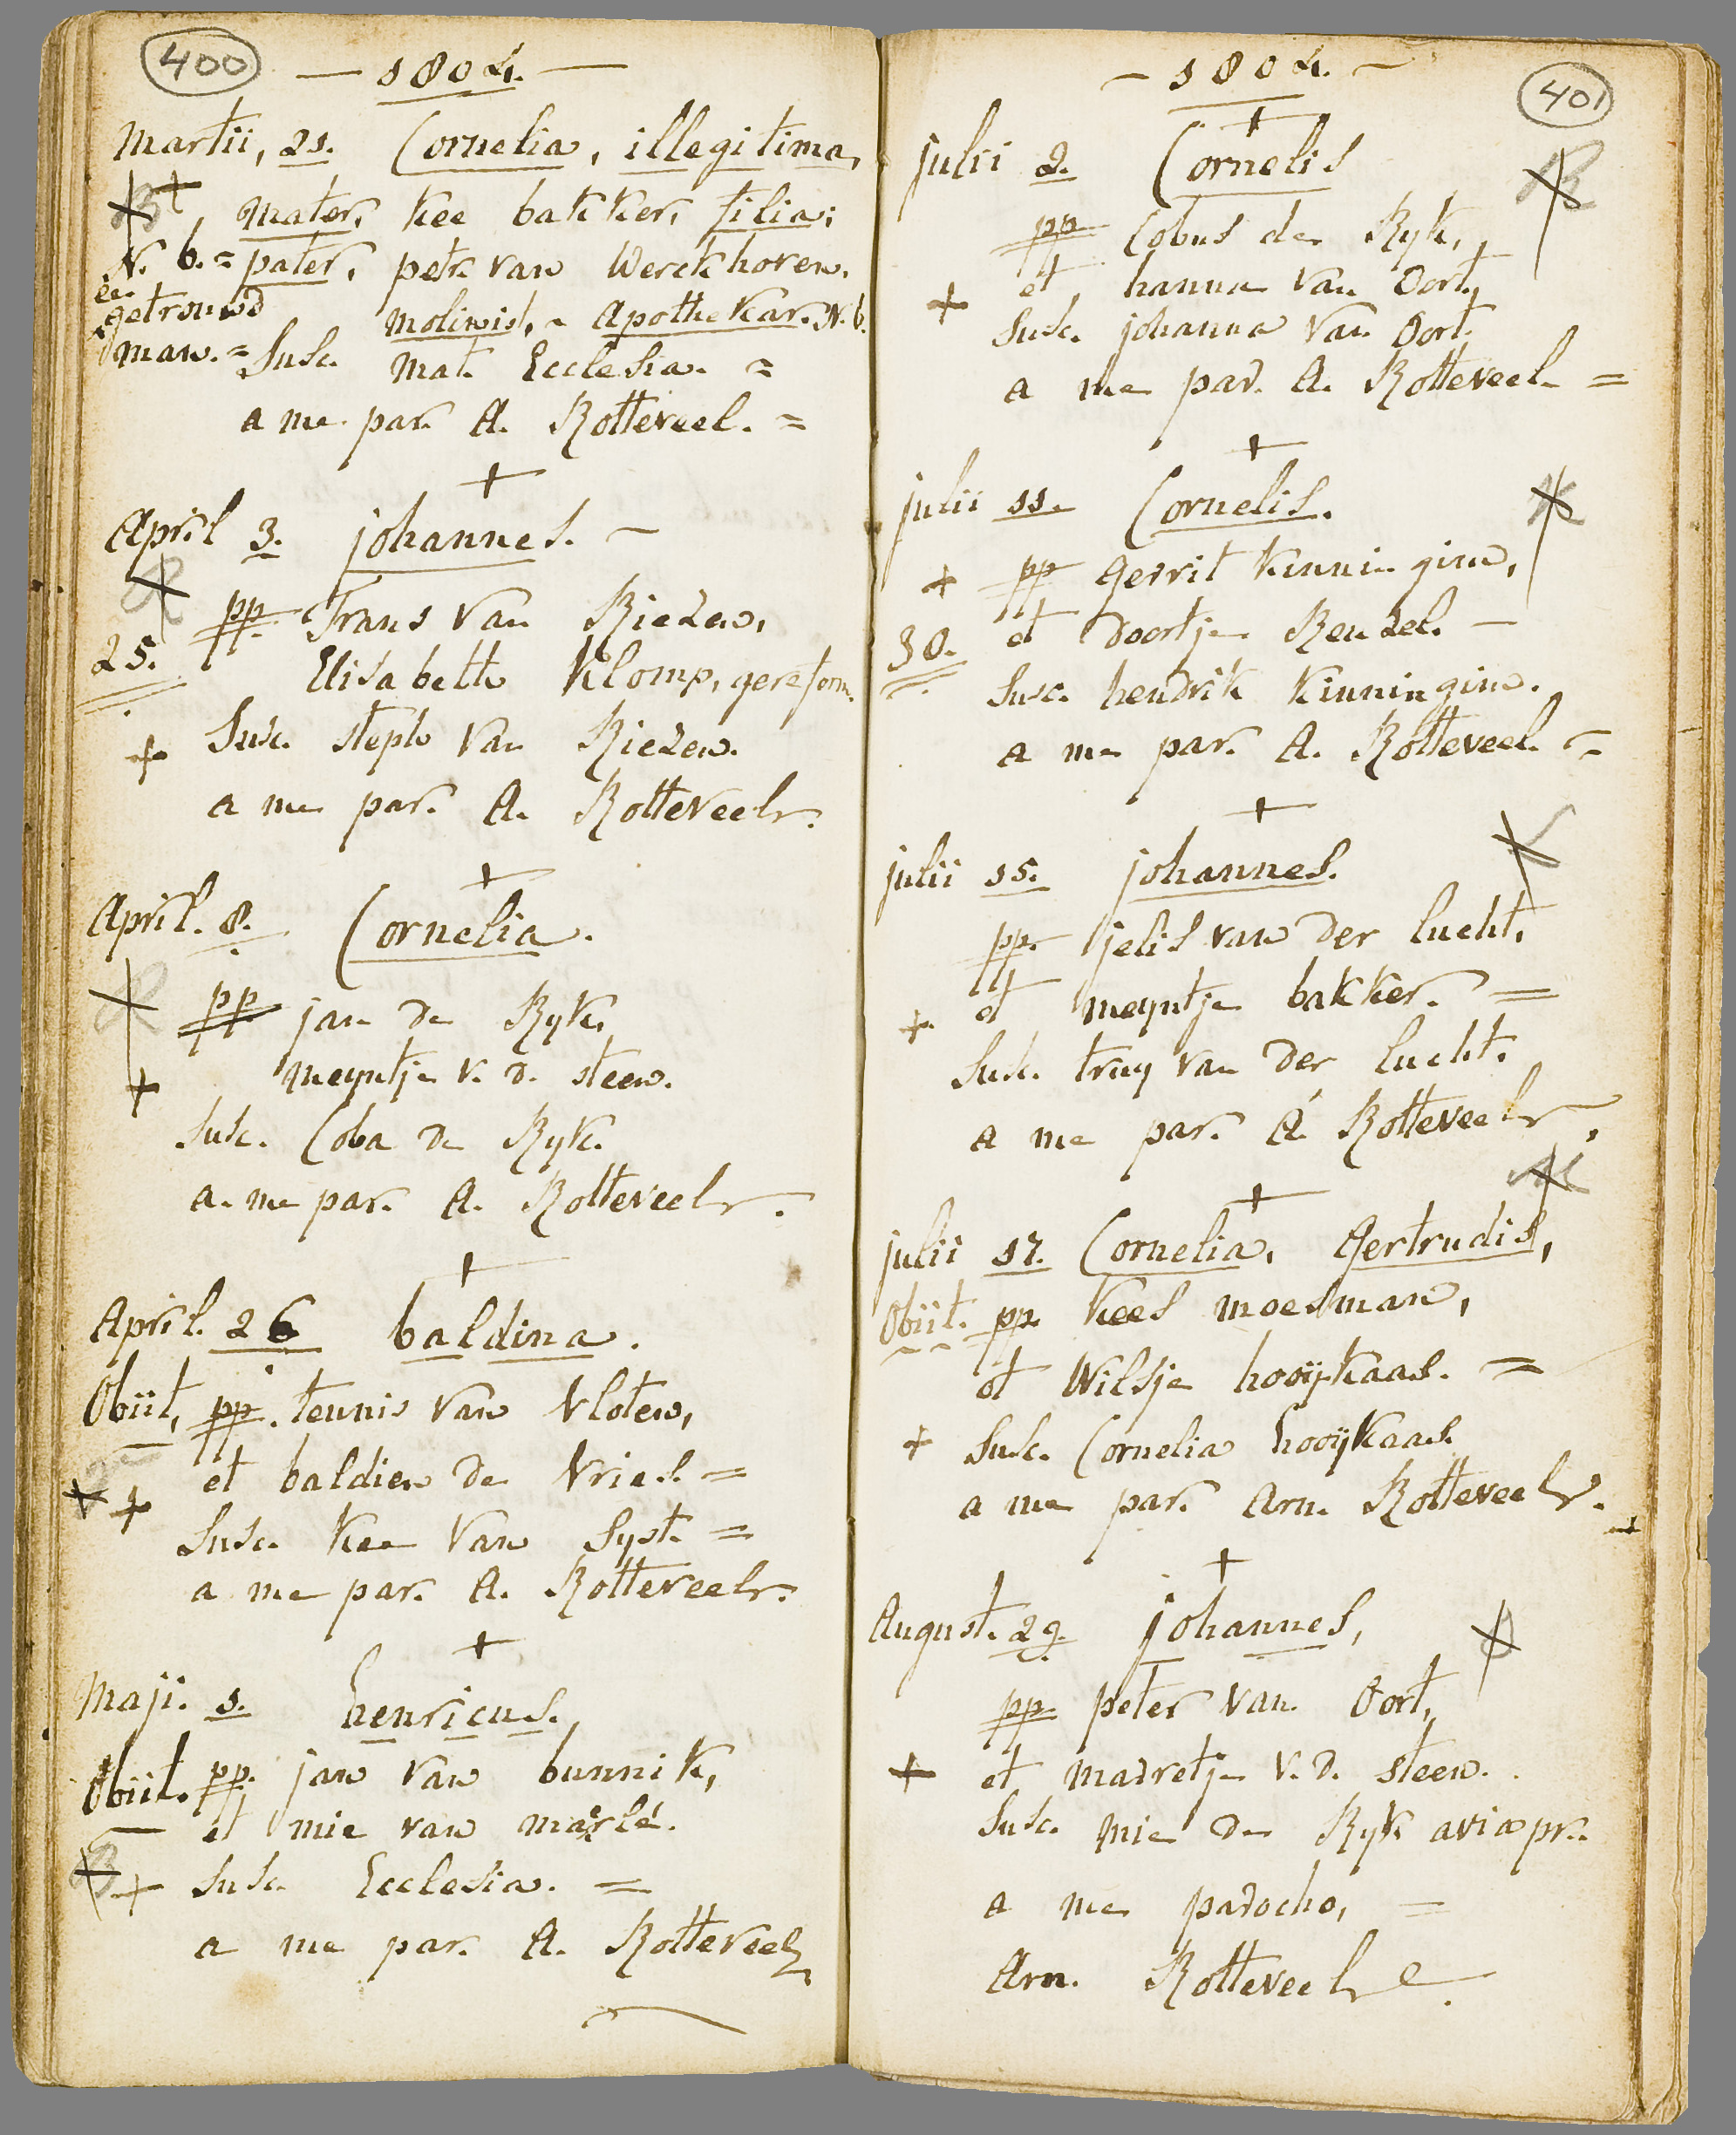 400
— 1804. —
Martii, 21. Cornelia, illegitima,
mater, kee bakker, filia;
N. b. = pater, petr. van Werckhoven.
een
getrouwd molinist, - Apothekar. N. b.
man. = Susc. mat. Ecclesia. =
a me par. A. Rotteveel. =
April 3. johannes. -
pp. Frans van Riezen,
25. Elisabeth Klomp, gereform.
Susc. steph van Riezen.
a me par. A. Rotteveel.
April. 8. Cornelia.
pp jan de Ryk,
meyntje v. d. steen.
Susc. Coba de Ryk.
a. me par. A. Rotteveel.
April. 26 baldina.
Obiit, pp. teunis van Vloten,
et baldien de Vries. =
Susc. kee van Syst. =
a me par. A. Rotteveel.
Maji. 1. henricus.
Obiit. pp. jan van bunnik,
et mie van marlé.
Susc. Ecclesia. =
a me par. A. Rotteveel
- 1804. -
401
julii 2. Cornelis
pp Cobus de Ryk,
et hanna van Oort,
Susc. johanna van Oort.
a me par. A. Rotteveel =
julii 11. Cornelis.
pp gerrit kinningin,
30. et doortje Renzel. —
Susc. hendrik kinningin.
a me par. A. Rotteveel. =
julii 15. johannes.
pp. jelis van der lucht,
et meyntje bakker. =
Susc. truy van der lucht.
a me par. A. Rotteveel.
julii 17. Cornelia, Gertrudis,
Obiit. pp. kees moesman,
et Wilsje hooijkaas. =
Susc. Cornelia hooijkaas.
a me par. Arn. Rotteveel.
August. 29. johannes,
pp. peter van Oort,
et marretje v. d. steen.
Susc. mie de Ryk avia pr.
a me parocho, =
Arn. Rotteveel